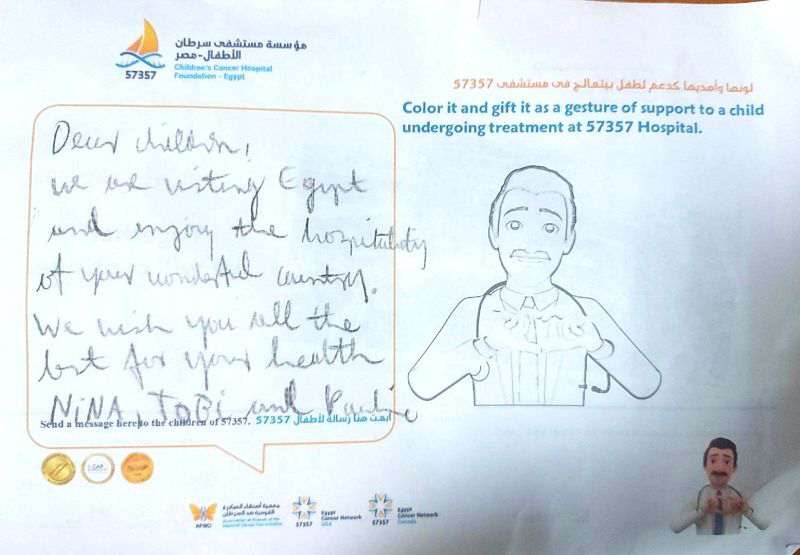 مؤسسة مستشفى سرطان
الأطفال-مصر
Children's Cancer Hospital
Foundation - Egypt
57357
لونها وأهديها كدعم لطفل بيتعالج فى مستشفى 57357
Color it and gift it as a gesture of support to a child
undergoing treatment at 57357 Hospital.
Dear children,
we are visiting Egypt
and enjoy the hospitality
of your wonderful country.
We wish you all the
best for your health
NiNA, TOBi and Pauline
Send a message here to the children of 57357. ابعت هنا رسالة لأطفال 57357
جمعية أصدقاء المبادرة
القومية ضد السرطان
AFNCI
57357
Egypt
Cancer Network
USA
57357
Egypt
Cancer Network
Canada